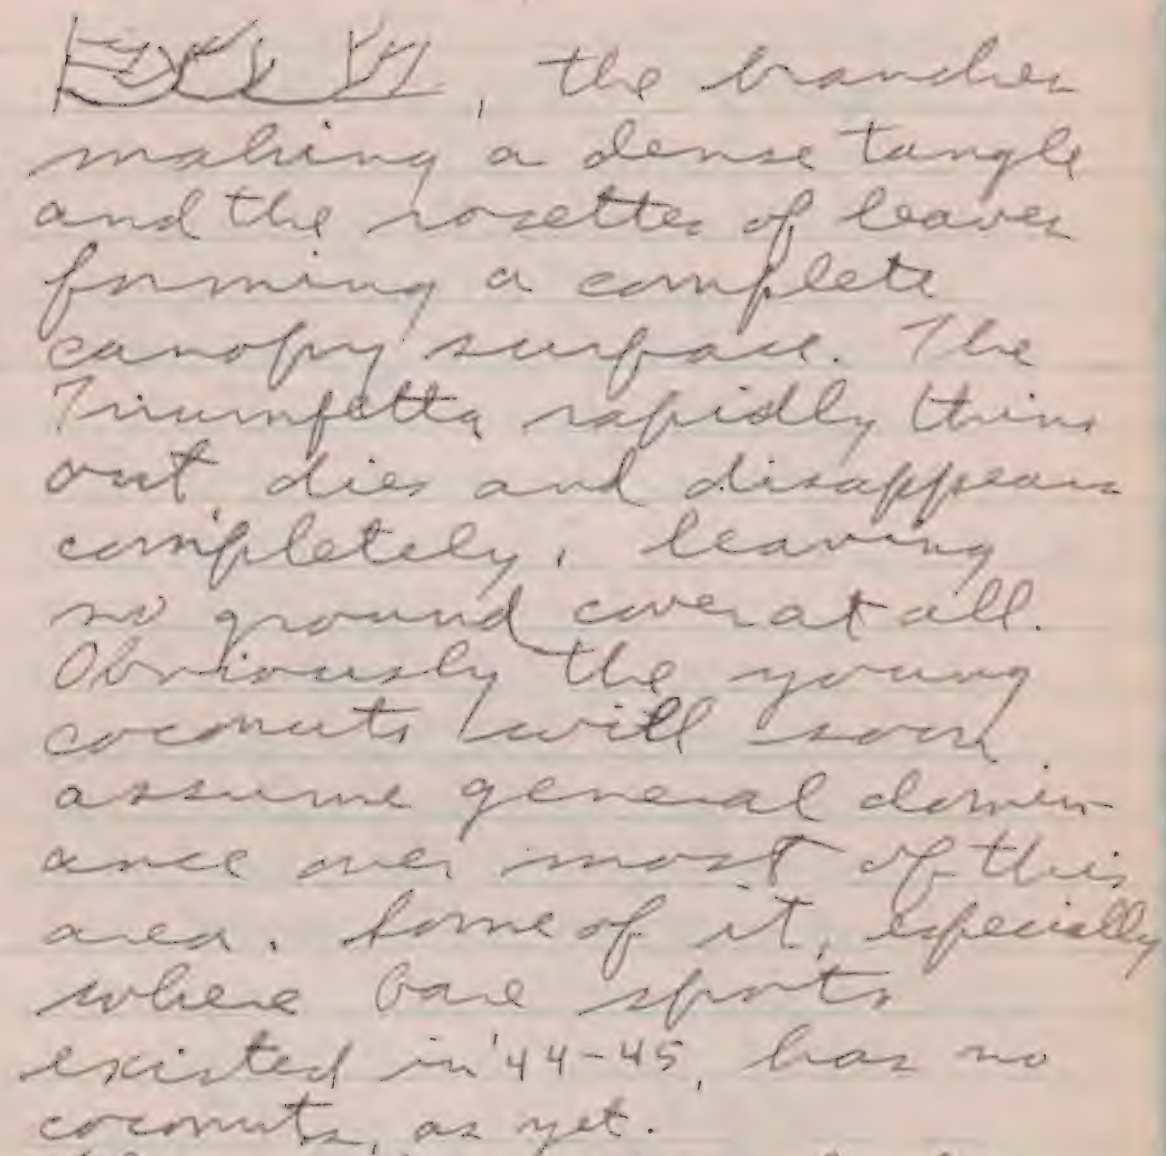 , the branches
making a dense tangle
and the rosettes of leaves
forming a complete
canopy surface. The
Triumfetta rapidly thins
out, dies and disappears
completely, leaving
no ground cover at all.
Obviously the young
coconuts will soon
assume general domin-
ance over most of this
area. Some of it, especially
where bare spots
existed in '44-45, has no
coconuts, as yet.